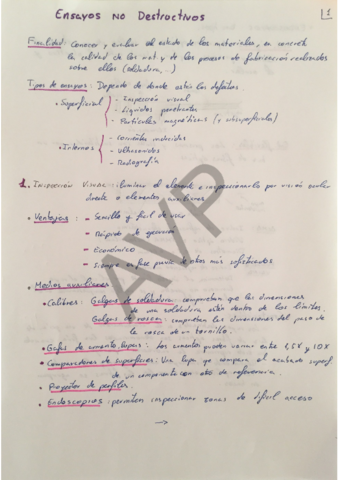 Ensayos No Destructivos
1
Finalidad: Conocer y evaluar el estado de los materiales, en concreto
la calidad de los mat. y de los procesos de fabricación realizados
sobre ellos (soldadura, )
Tipos de ensayos: Depende de donde están los defectos.
• Superficial
- Inspección visual
- Líquidos penetrantes
- Partículas magnéticas (y subsuperficiales)
• Internos
- Corrientes inducidas
- Ultrasonidos
- Radiografía
1. Inspección Visual: iluminar el elemento e inspeccionarlo por visión ocular
directa o elementos auxiliares
• Ventajas:
- Sencillo y fácil de usar
- Rápido de ejecución
- Económico
- Siempre en fase previa de otros más sofisticados
• Medios auxiliares
• Calibres: Galgas de soldadura comprueban que las dimensiones
de una soldadura están dentro de los límites.
Galgas de roscas: comprueban las dimensiones del paso de
la rosca de un tornillo.
• Gafas de aumento, lupas: Los aumentos pueden variar entre 1,5X y 10X
• Comparadores de superficies: Una lupa que compara el acabado superf.
de un componente con otro de referencia.
• Proyector de perfiles.
• Endoscopios: permiten inspeccionar zonas de difícil acceso
→
AVP